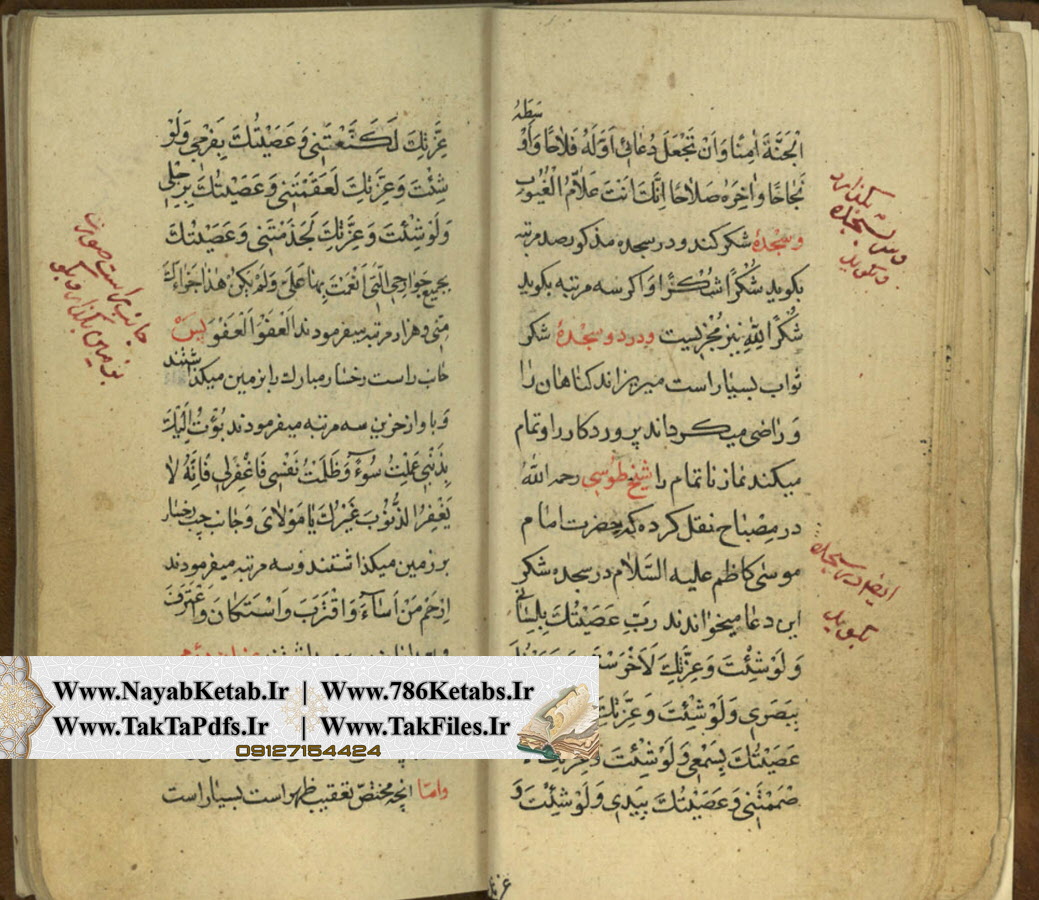 سطه
الْجَنَّةَ اٰمِنًا وَاَنْ تَجْعَلَ دُعَائِی اَوَّلَهُ فَلَاحًا وَاَوْ
نَجَاحًا وَاٰخِرَهُ صَلَاحًا اِنَّكَ اَنْتَ عَلَّامُ الْغُیُوبِ
وسجدهٔ شکر کند و در سجده مذکور صد مرتبه
بکوید شُکْرًا شُکْرًا و اکر سه مرتبه بکوید
شُکْرًا لِلّٰهِ نیز مجزیست و در دو سجدهٔ شکر
ثواب بسیار است میریزاند کناهان را
و راضی میکرداند پروردکار را و تمام
میکند نماز ناتمام را شیخ طوسی رحمه الله
در مصباح نقل کرده که حضرت امام
موسی کاظم علیه السّلام در سجده شکر
این دعا میخواندند رَبِّ عَصَیْتُكَ بِلِسٰانِی
وَلَوْ شِئْتَ وَعِزَّتِكَ لَاَخْرَسْتَ
بِبَصَرِی وَلَوْ شِئْتَ وَعِزَّتِكَ
عَصَیْتُكَ بِسَمْعِی وَلَوْ شِئْتَ وَعِزَّتِكَ
صَمَمْتَنِی وَعَصَیْتُكَ بِیَدِی وَلَوْ شِئْتَ وَ
بکذارد
وسر بسجده
و بکوید
ایضا در سجده
بکوید
عِزَّتِكَ لَكَنَّعْتَنِی وَعَصَیْتُكَ بِفَرْجِی وَلَوْ
شِئْتَ وَعِزَّتِكَ لَعَقَمْتَنِی وَعَصَیْتُكَ بِرِجْلِی
وَلَوْ شِئْتَ وَعِزَّتِكَ لَجَذَمْتَنِی وَعَصَیْتُكَ
بِجَمِیعِ جَوَارِحِی الَّتِی اَنْعَمْتَ بِهَا عَلَیَّ وَلَمْ یَکُنْ هٰذَا جَزَاءَكَ
مِنِّی و هزار مرتبه میفرمودند اَلْعَفْوَ اَلْعَفْوَ پس
جانب راست رخسار مبارك را بزمین میکذاشتند
و باواز حزین سه مرتبه میفرمودند بُؤْتُ اِلَیْكَ
بِذَنْبِی عَمِلْتُ سُوٓءً وَظَلَمْتُ نَفْسِی فَاغْفِرْلِی فَاِنَّهُ لَا
یَغْفِرُ الذُّنُوبَ غَیْرُكَ یَا مَوْلَایَ و جانب چپ رخسار
بر زمین میکذاشتند و سه مرتبه میفرمودند
اِرْحَمْ مَنْ اَسَآءَ وَاقْتَرَفَ وَاسْتَکَانَ وَاعْتَرَفَ
وامّا انچه مختصّ تعقیب ظهر است بسیار است
جانب راست صورت
بزمین بکذارد و بکو
Www.NayabKetab.Ir | Www.786Ketabs.Ir
Www.TakTaPdfs.Ir | Www.TakFiles.Ir
09127154424